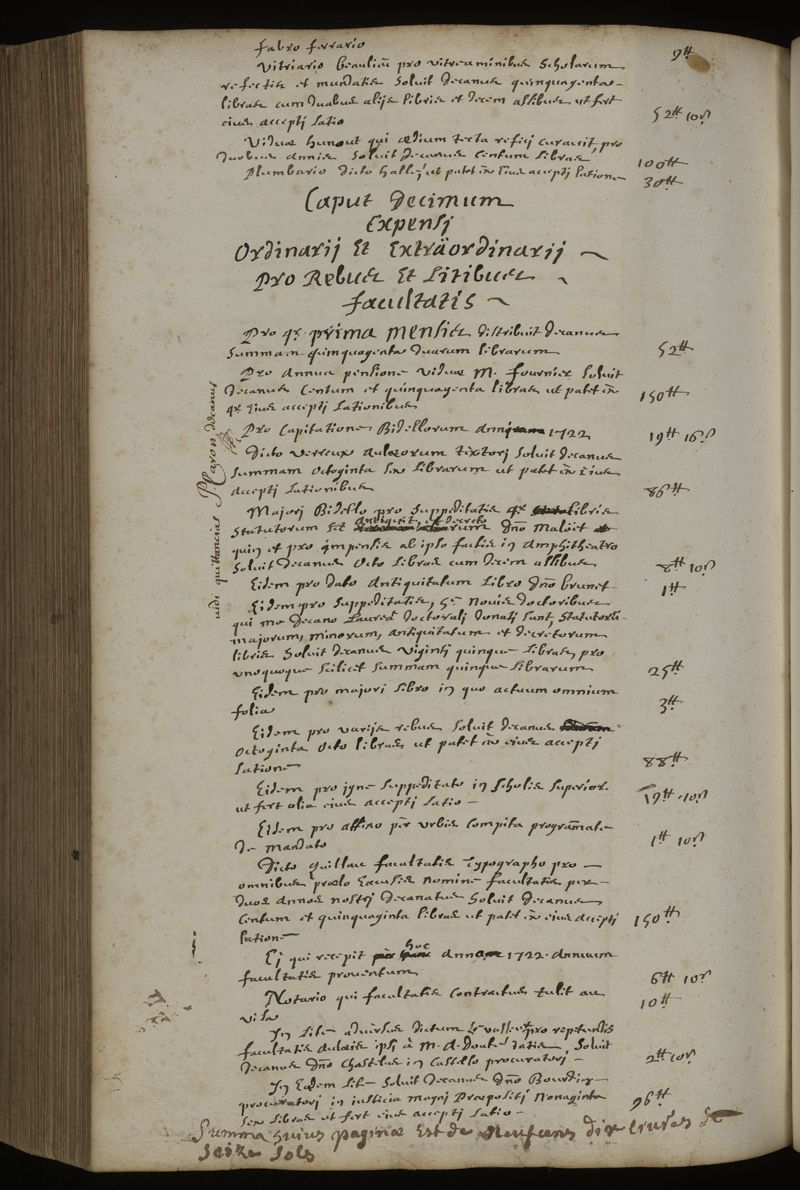 fabro ferrario 9ᵗᵗ
Vitriario beaulieu pro vitreaminibus Scholarum
refectis et mundatis Solvit decanus quinquagentas
libras cum duabus alijs libris et decem assibus ut fert
eius accepti latio 52ᵗᵗ 10ˢ
Viduæ hunout qui ædium tecta refici curavit, pro
duobus annis Solvit decanus Centum libras 100ᵗᵗ
Plumbario dicto halley ut patet in eius accepti latione 30ᵗᵗ
Caput decimum
Expensi
Ordinarij Et Extraordinarij
Pro Rebus Et Litibus
facultatis
Pro 4ᵒʳ prima mensis distribuit decanus
Summam quinquagenta duarum librarum 52ᵗᵗ
Pro Annua pensione Viduæ M. fournier Solvit
decanus Centum et quinquagenta libras ut patet in
4ᵒʳ eius accepti lationibus 150ᵗᵗ
Pro Capitatione Bidellorum anni 1722 19ᵗᵗ 16ˢ
Dicto Verreux aulæorum textori Solvit decanus
Summam octoginta sex librarum ut patet in eius
accepti lationibus 86ᵗᵗ
Majori Bidello pro Suppeditatis 4ᵒʳ libris
Statutorum Sct antiquit. et decreto dño Maloet
quin et pro impensis ab ipso factis in Amphitheatro
Solvit decanus octo libras cum decem assibus 8ᵗᵗ 10ˢ
Eidem pro dato Antiquitatum Libro dño brunet 1ᵗᵗ
Eidem pro Suppeditatis, 5ᵉ novis doctoribus
qui me decano Laurea doctorali donati Sunt, Statutorū
majorum, minorum, antiquitatum et decretorum
libris Solvit decanus Viginti quinque Libras, pro
unoquoque Scilicet Summam quinque librarum 25ᵗᵗ
Eidem pro majori libro in quo actuum omnium
folia 3ᵗᵗ
Eidem pro varijs rebus Solvit decanus
octoginta octo libras, ut patet in eius accepti
latione 88ᵗᵗ
Eidem pro igne Suppeditato in Scholis Superior.
ut fert alia eius accepti latio 19ᵗᵗ 10ˢ
Eidem pro affixo per urbis compita programate
de mandato 1ᵗᵗ 10ˢ
Dicto quillau facultatis typographo pro
omnibus prælo excusis nomine facultatis per
duos annos nostri decanatus Solvit decanus
Centum et quinquaginta libras ut patet in eius accepti
latione 150ᵗᵗ
Ei qui recepit hoc anno 1722 annuum
facultatis proventum 6ᵗᵗ 10ˢ
Notario qui facultatis Contractus tulit au
visa 10ᵗᵗ
In Lite adversus dictum le vasseur pro repetundis
facultatis aulæis ipsi à M. d. doutes datis, Solvit
decanus dño Chastelus in Castello procuratori 2ᵗᵗ 10ˢ
In Eadem Lite Solvit decanus dño Bourdin
procuratori in justicia magni Præpositi Nonaginta
sex libras ut fert eius accepti latio 96ᵗᵗ
Summa huius paginæ Est de Neufcens dix livres et
Seize Sols
vidi quittancias P. Caron decanus